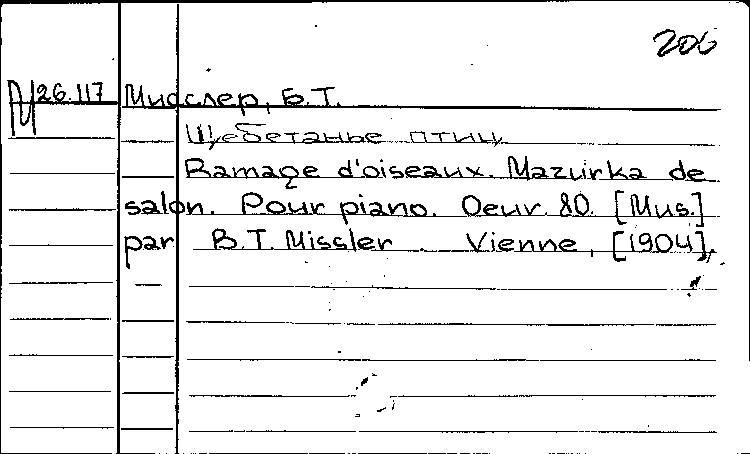 206
М 26.117 Мисслер, Б.Т.
Щебетанье птиц
Ramage d'oiseaux. Mazurka de
salon. Pour piano. Oeuv. 80. [Mus.]
par B.T. Missler. Vienne, [1904].